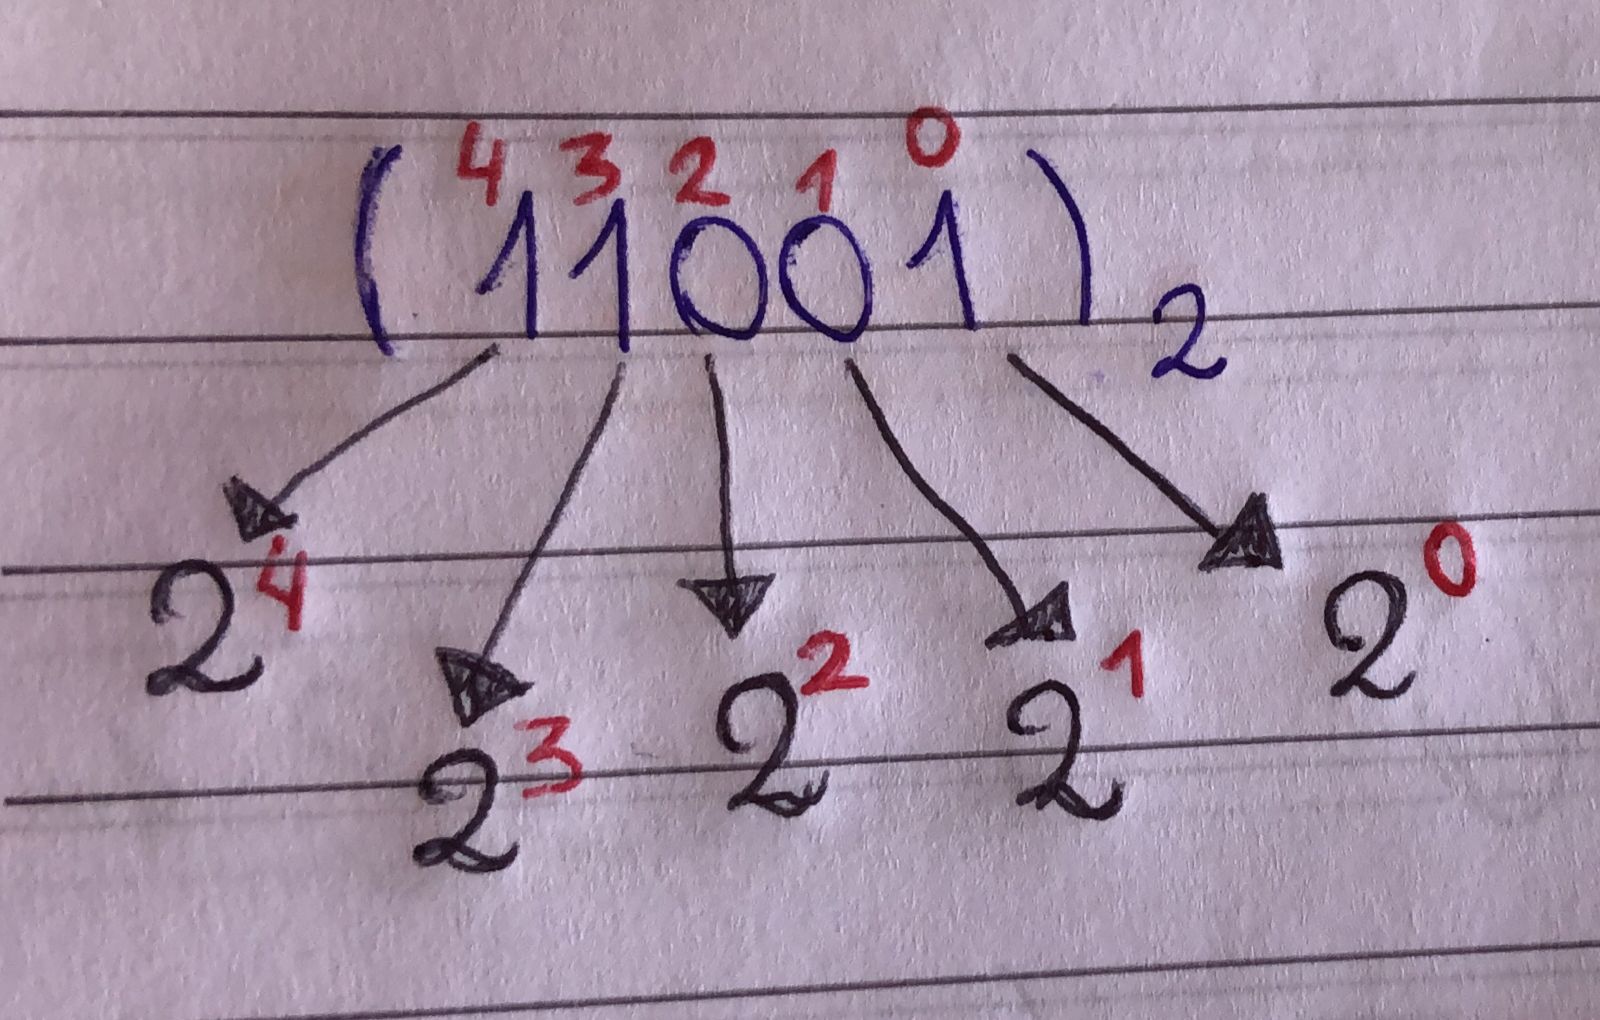 4 3 2 1 0
(11001)₂
2⁴ 2³ 2² 2¹ 2⁰